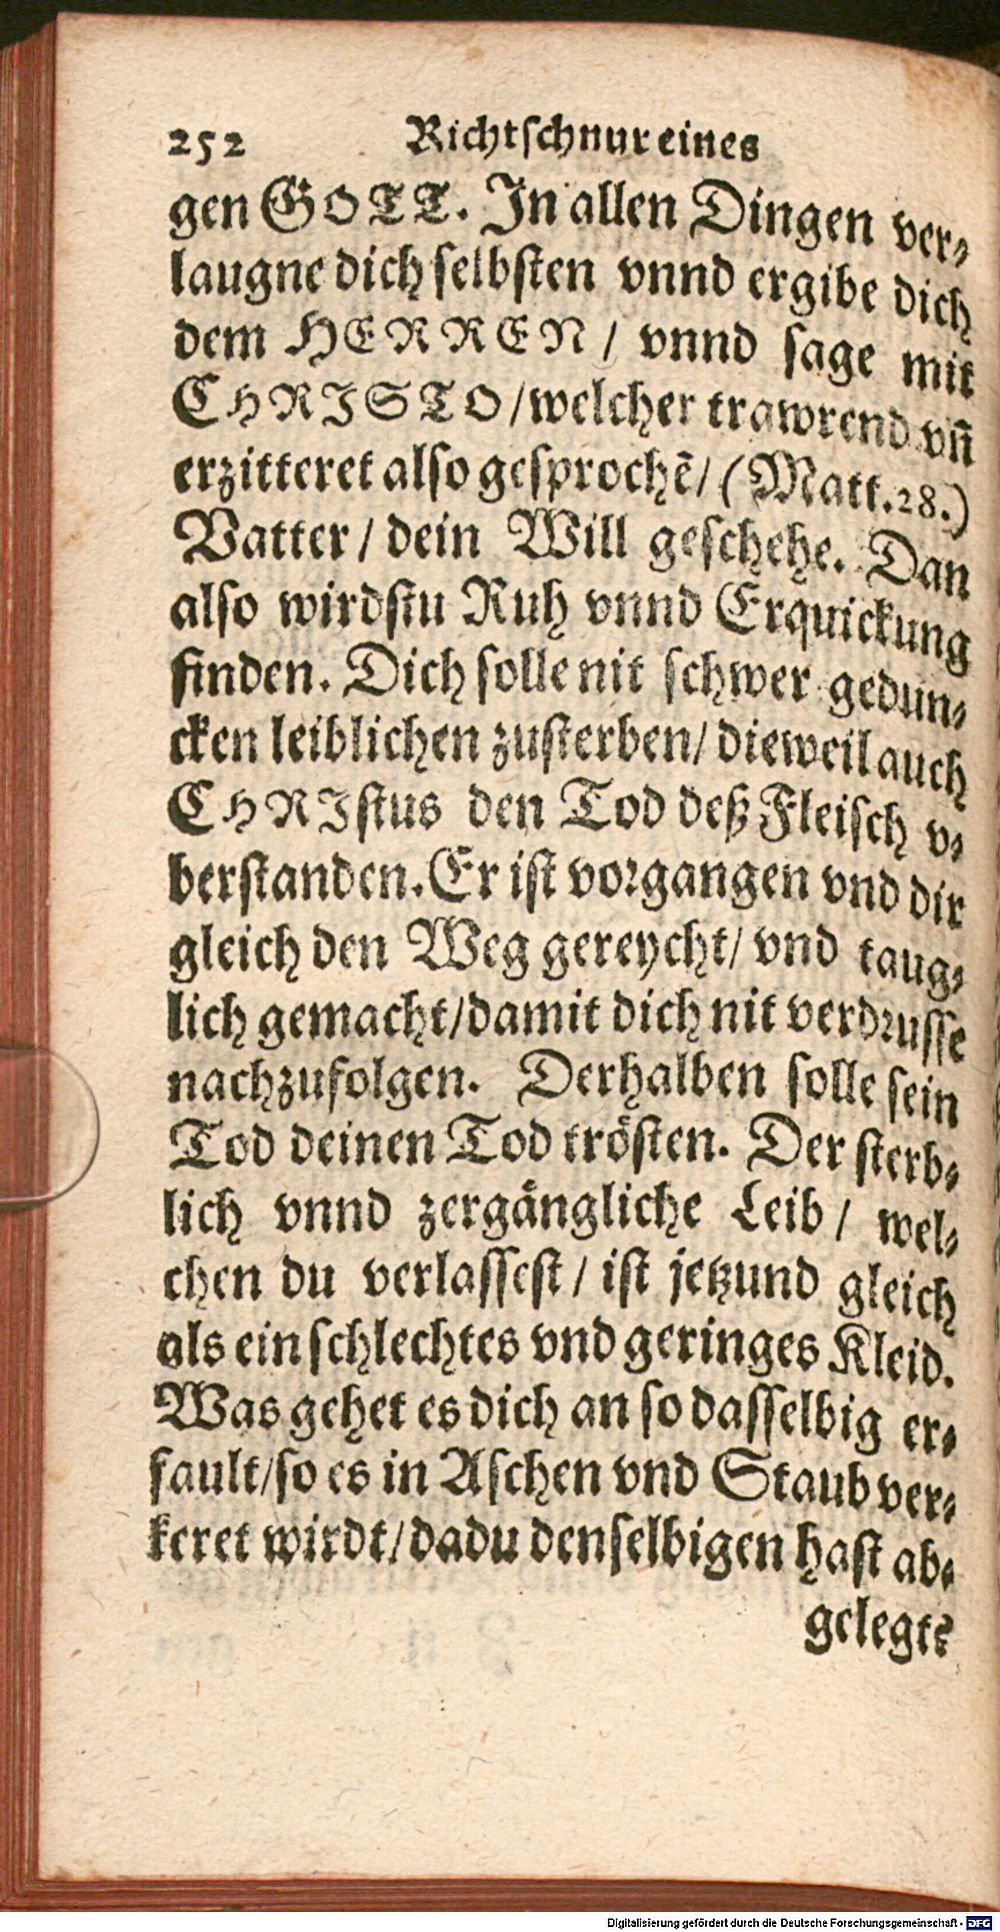 252 Richtschnur eines
gen GOTT. In allen Dingen ver⸗
laugne dich selbsten vnnd ergibe dich
dem HERREN / vnnd sage mit
CHRISTO / welcher trawrend vn̄
erzitteret also gesprochē / (Matt. 28.)
Vatter / dein Will geschehe. Dan
also wirdstu Ruh vnnd Erquickung
finden. Dich solle nit schwer gedun⸗
cken leiblichen zusterben / dieweil auch
CHRIstus den Tod deß Fleisch v⸗
berstanden. Er ist vorgangen vnd dir
gleich den Weg gereycht / vnd taug⸗
lich gemacht / damit dich nit verdrusse
nachzufolgen. Derhalben solle sein
Tod deinen Tod trösten. Der sterb⸗
lich vnnd zergängliche Leib / wel⸗
chen du verlassest / ist jetzund gleich
als ein schlechtes vnd geringes Kleid.
Was gehet es dich an so dasselbig er⸗
fault / so es in Aschen vnd Staub ver⸗
keret wirdt / da du denselbigen hast ab⸗
gelegts
Digitalisierung gefördert durch die Deutsche Forschungsgemeinschaft - DFG